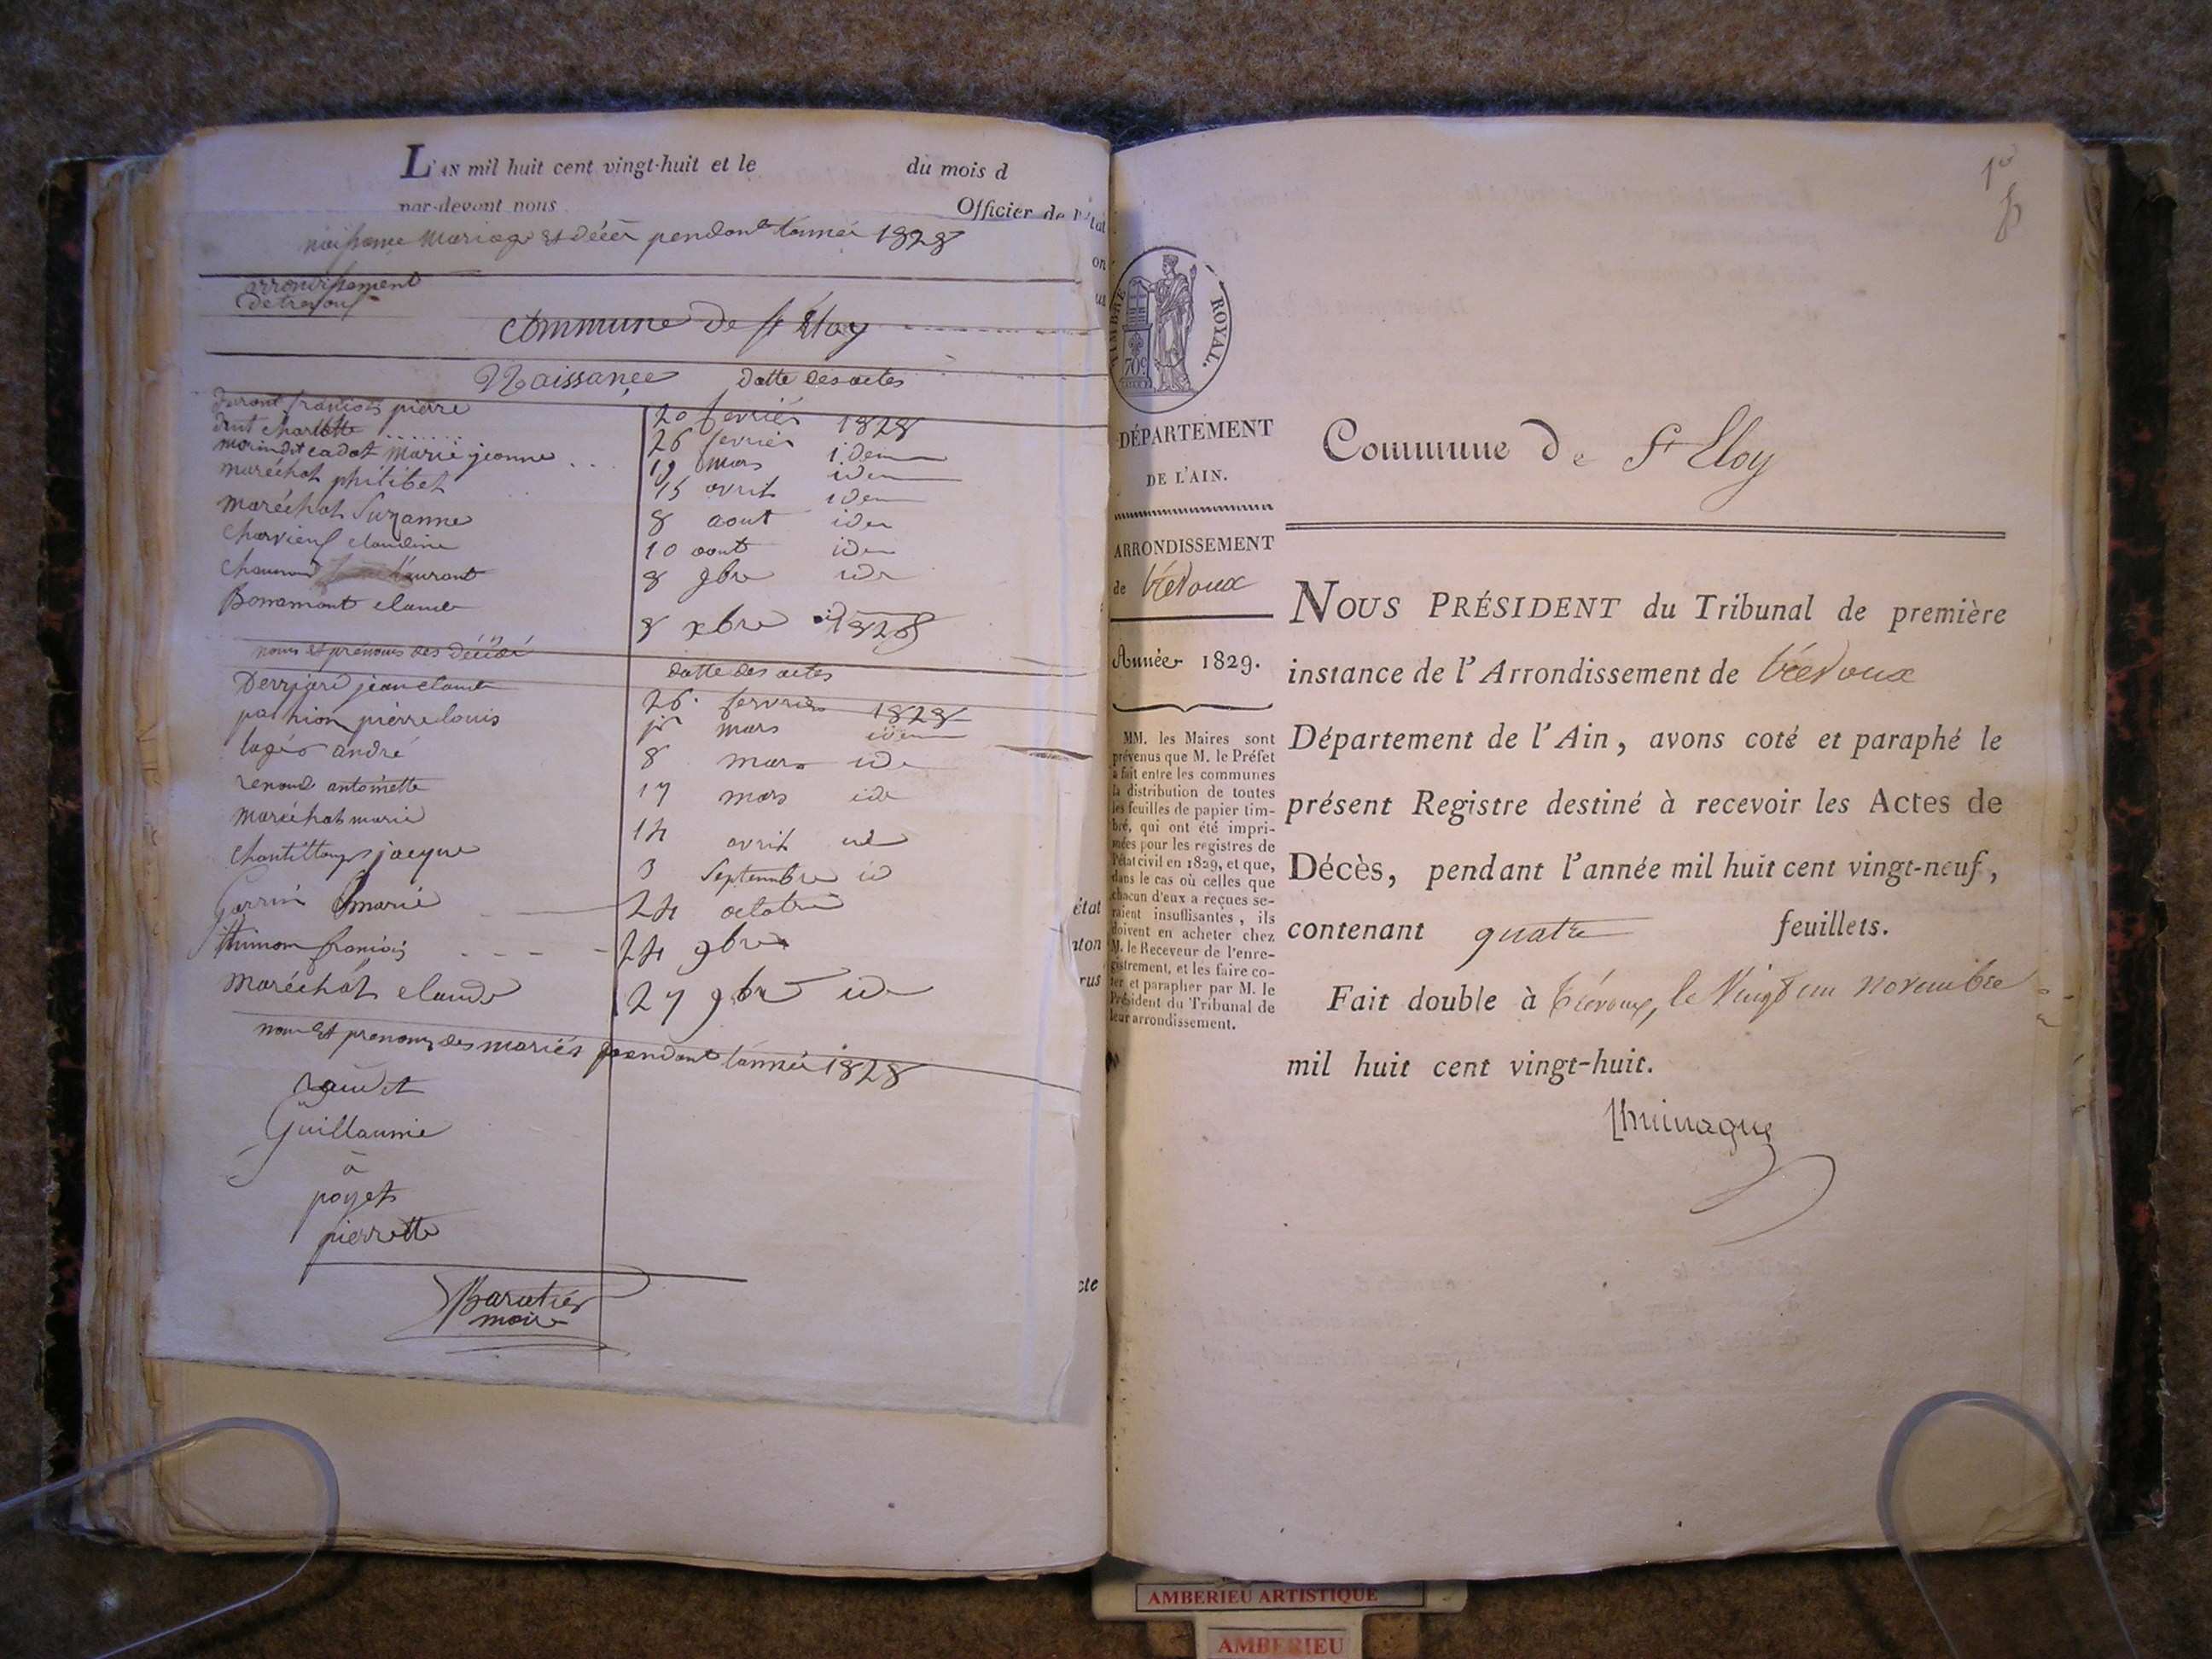 L'AN mil huit cent vingt-huit et le du mois d
par-devant nous Officier de l'état
naissance mariage et décès pendant l'année 1828
arrondissement
de trevoux
commune de st Eloy
Naissance datte des actes
françois pierre 20 fevrier 1828
charlotte 26 fevrier idem
cadot marie jeanne 19 mars idem
maréchal philibet 15 avril idem
maréchal Suzanne 8 aout idem
claudine 10 aout idem
laurant 8 9bre ide
Bonnamont claude 8 xbre 1828
noms et prénoms des décédé datte des actes
jean claude 26 fevrier 1828
pierre louis 1r mars idem
lagér andré 8 mars ide
renoud antoinette 17 mars ide
maréchal marie 14 avril ide
jacque 3 Septembre id
marie 24 octobre
françois 24 9bre
maréchal claude 27 9bre ide
nom et prenoms des mariés pendant l'année 1828
Guillaume
à
poyet
pierrette
Baratier
maire
état
cte
1er
TIMBRE ROYAL.
70c
DÉPARTEMENT
DE L'AIN.
ARRONDISSEMENT
de trévoux
Année 1829.
MM. les Maires sont
prévenus que M. le Préfet
a fait entre les communes
la distribution de toutes
les feuilles de papier tim-
bré, qui ont été impri-
mées pour les registres de
l'état civil en 1829, et que,
dans le cas où celles que
chacun d'eux a reçues se-
raient insuffisantes, ils
doivent en acheter chez
M. le Receveur de l'enre-
gistrement, et les faire co-
ter et parapher par M. le
Président du Tribunal de
leur arrondissement.
Commune de St Eloy
NOUS PRÉSIDENT du Tribunal de première
instance de l'Arrondissement de trévoux
Département de l'Ain, avons coté et paraphé le
présent Registre destiné à recevoir les Actes de
Décès, pendant l'année mil huit cent vingt-neuf,
contenant quatre feuillets.
Fait double à trévoux, le vingt un novembre
mil huit cent vingt-huit.
AMBERIEU ARTISTIQUE
AMBERIEU